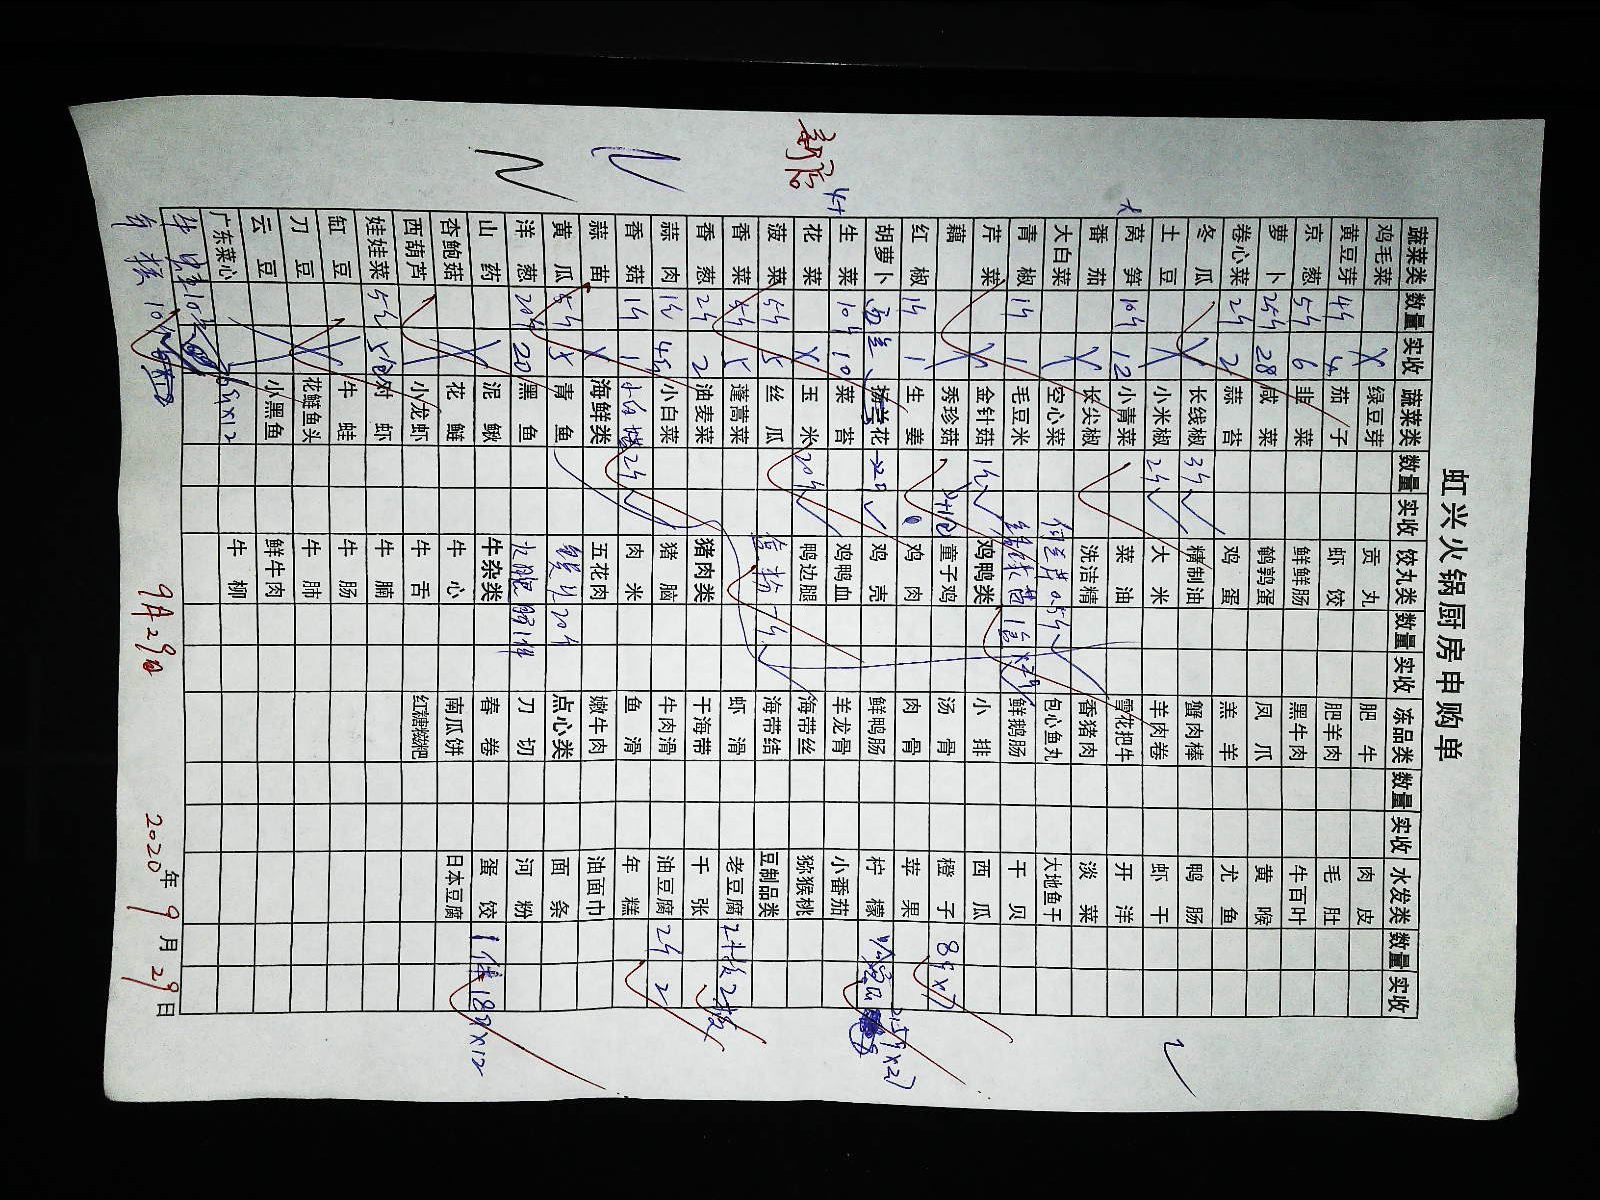 虹兴火锅厨房申购单
新店
蔬菜类 数量 实收 蔬菜类 数量 实收 饺丸类 数量 实收 冻品类 数量 实收 水发类 数量 实收
鸡毛菜 X 绿豆芽 贡丸 肥牛 肉皮
黄豆芽 4斤 4 茄子 虾饺 肥羊肉 毛肚
京葱 5斤 6 韭菜 鲜鲜肠 黑牛肉 牛百叶
萝卜 25斤 28 咸菜 鹌鹑蛋 凤爪 黄喉
卷心菜 2斤 2 蒜苔 鸡蛋 羔羊 尤鱼
冬瓜 X 长线椒 3斤 精制油 蟹肉棒 鸭肠
土豆 X 小米椒 2斤 大米 羊肉卷 虾干
莴笋 10斤 12 小青菜 菜油 雪花把牛 开洋
番茄 X 长尖椒 洗洁精 香猪肉 淡菜
大白菜 空心菜 包心鱼丸 大地鱼干
青椒 1斤 1 毛豆米 鲜鹅肠 干贝
芹菜 X 金针菇 1斤 鸡鸭类 小排 西瓜
藕 秀珍菇 童子鸡 汤骨 橙子 8斤x7
红椒 1斤 1 生姜 鸡肉 肉骨 苹果
胡萝卜 杨兰花 鸡壳 鲜鸭肠 柠檬
生菜 10斤 10 菜苔 鸡鸭血 羊龙骨 小番茄
花菜 X 玉米 20斤 鸭边腿 海带丝 猕猴桃
菠菜 5斤 5 丝瓜 海带结 豆制品类
香菜 5斤 5 蓬蒿菜 虾滑 老豆腐 2板 2板
香葱 2斤 2 油麦菜 猪肉类 干海带 千张
蒜肉 1斤 小白菜 猪脑 牛肉滑 油豆腐 2斤 2
香菇 1斤 1 2斤 肉米 鱼滑 年糕
蒜苗 X 海鲜类 五花肉 嫩牛肉 油面巾
黄瓜 5斤 5 青鱼 点心类 面条
洋葱 20斤 20 黑鱼 刀切 河粉
山药 X 泥鳅 牛杂类 春卷 蛋饺 1件 18斤x12
杏鲍菇 X 花鲢 牛心 南瓜饼 日本豆腐
西葫芦 小龙虾 牛舌 红糖糍粑
娃娃菜 5斤 对虾 牛腩
缸豆 X 牛蛙 牛肠
刀豆 X 花鲢鱼头 牛肺
云豆 X 小黑鱼 鲜牛肉
广东菜心 牛柳
9月29日 2020年9月29日